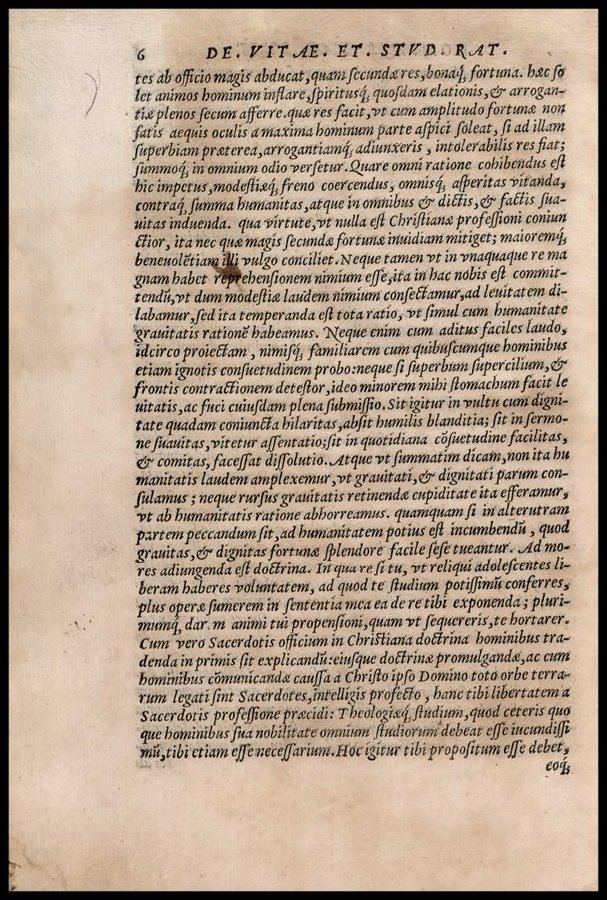 6 DE. VITAE. ET. STVD. RAT.
tes ab officio magis abducat, quam secundæ res, bonaq́; fortuna. hæc so
let animos hominum inflare, spiritusq́; quosdam elationis, & arrogan-
tiæ plenos secum afferre. quæ res facit, vt cum amplitudo fortunæ non
satis aequis oculis a maxima hominum parte aspici soleat, si ad illam
superbiam præterea, arrogantiamq́; adiunxeris, intolerabilis res fiat;
summoq́; in omnium odio versetur. Quare omni ratione cohibendus est
hic impetus, modestiæq́; freno coercendus; omnisq́; asperitas vitanda,
contraq́; summa humanitas, atque in omnibus & dictis, & factis sua-
uitas induenda. qua virtute, vt nulla est Christianæ professioni coniun
ctior, ita nec quæ magis secundæ fortunæ inuidiam mitiget; maioremq́;
beneuolẽtiam illi vulgo conciliet. Neque tamen vt in vnaquaque re ma
gnam habet reprehensionem nimium esse, ita in hac nobis est commit-
tendũ, vt dum modestiæ laudem nimium consectamur, ad leuitatem di-
labamur, sed ita temperanda est tota ratio, vt simul cum humanitate
grauitatis rationẽ habeamus. Neque enim cum aditus faciles laudo,
idcirco proiectam, nimisq́; familiarem cum quibuscumque hominibus
etiam ignotis consuetudinem probo: neque si superbum supercilium, &
frontis contractionem detestor, ideo minorem mihi stomachum facit le
uitatis, ac fuci cuiusdam plena submissio. Sit igitur in vultu cum digni-
tate quadam coniuncta hilaritas, absit humilis blanditia; sit in sermo-
ne suauitas, vitetur assentatio; sit in quotidiana cõsuetudine facilitas,
& comitas, facessat dissolutio. Atque vt summatim dicam, non ita hu
manitatis laudem amplexemur, vt grauitati, & dignitati parum con-
sulamus; neque rursus grauitatis retinendæ cupiditate ita efferamur,
vt ab humanitatis ratione abhorreamus. quamquam si in alterutram
partem peccandum sit, ad humanitatem potius est incumbendũ, quod
grauitas, & dignitas fortunæ splendore facile sese tueantur. Ad mo-
res adiungenda est doctrina. In qua re si tu, vt reliqui adolescentes li-
beram haberes voluntatem, ad quod te studium potissimũ conferres,
plus operæ sumerem in sententia mea ea de re tibi exponenda; pluri-
mumq́; darem animi tui propensioni, quam vt sequereris, te hortarer.
Cum vero Sacerdotis officium in Christiana doctrina hominibus tra-
denda in primis sit explicandũ: eiusque doctrinæ promulgandæ, ac cum
hominibus cõmunicandæ caussa a Christo ipso Domino toto orbe terra-
rum legati sint Sacerdotes, intelligis profecto, hanc tibi libertatem a
Sacerdotis professione præcidi: Theologiæq́; studium, quod ceteris quo
que hominibus sua nobilitate omnium studiorum debeat esse iucundissi
mũ, tibi etiam esse necessarium. Hoc igitur tibi propositum esse debet,
eoq́;